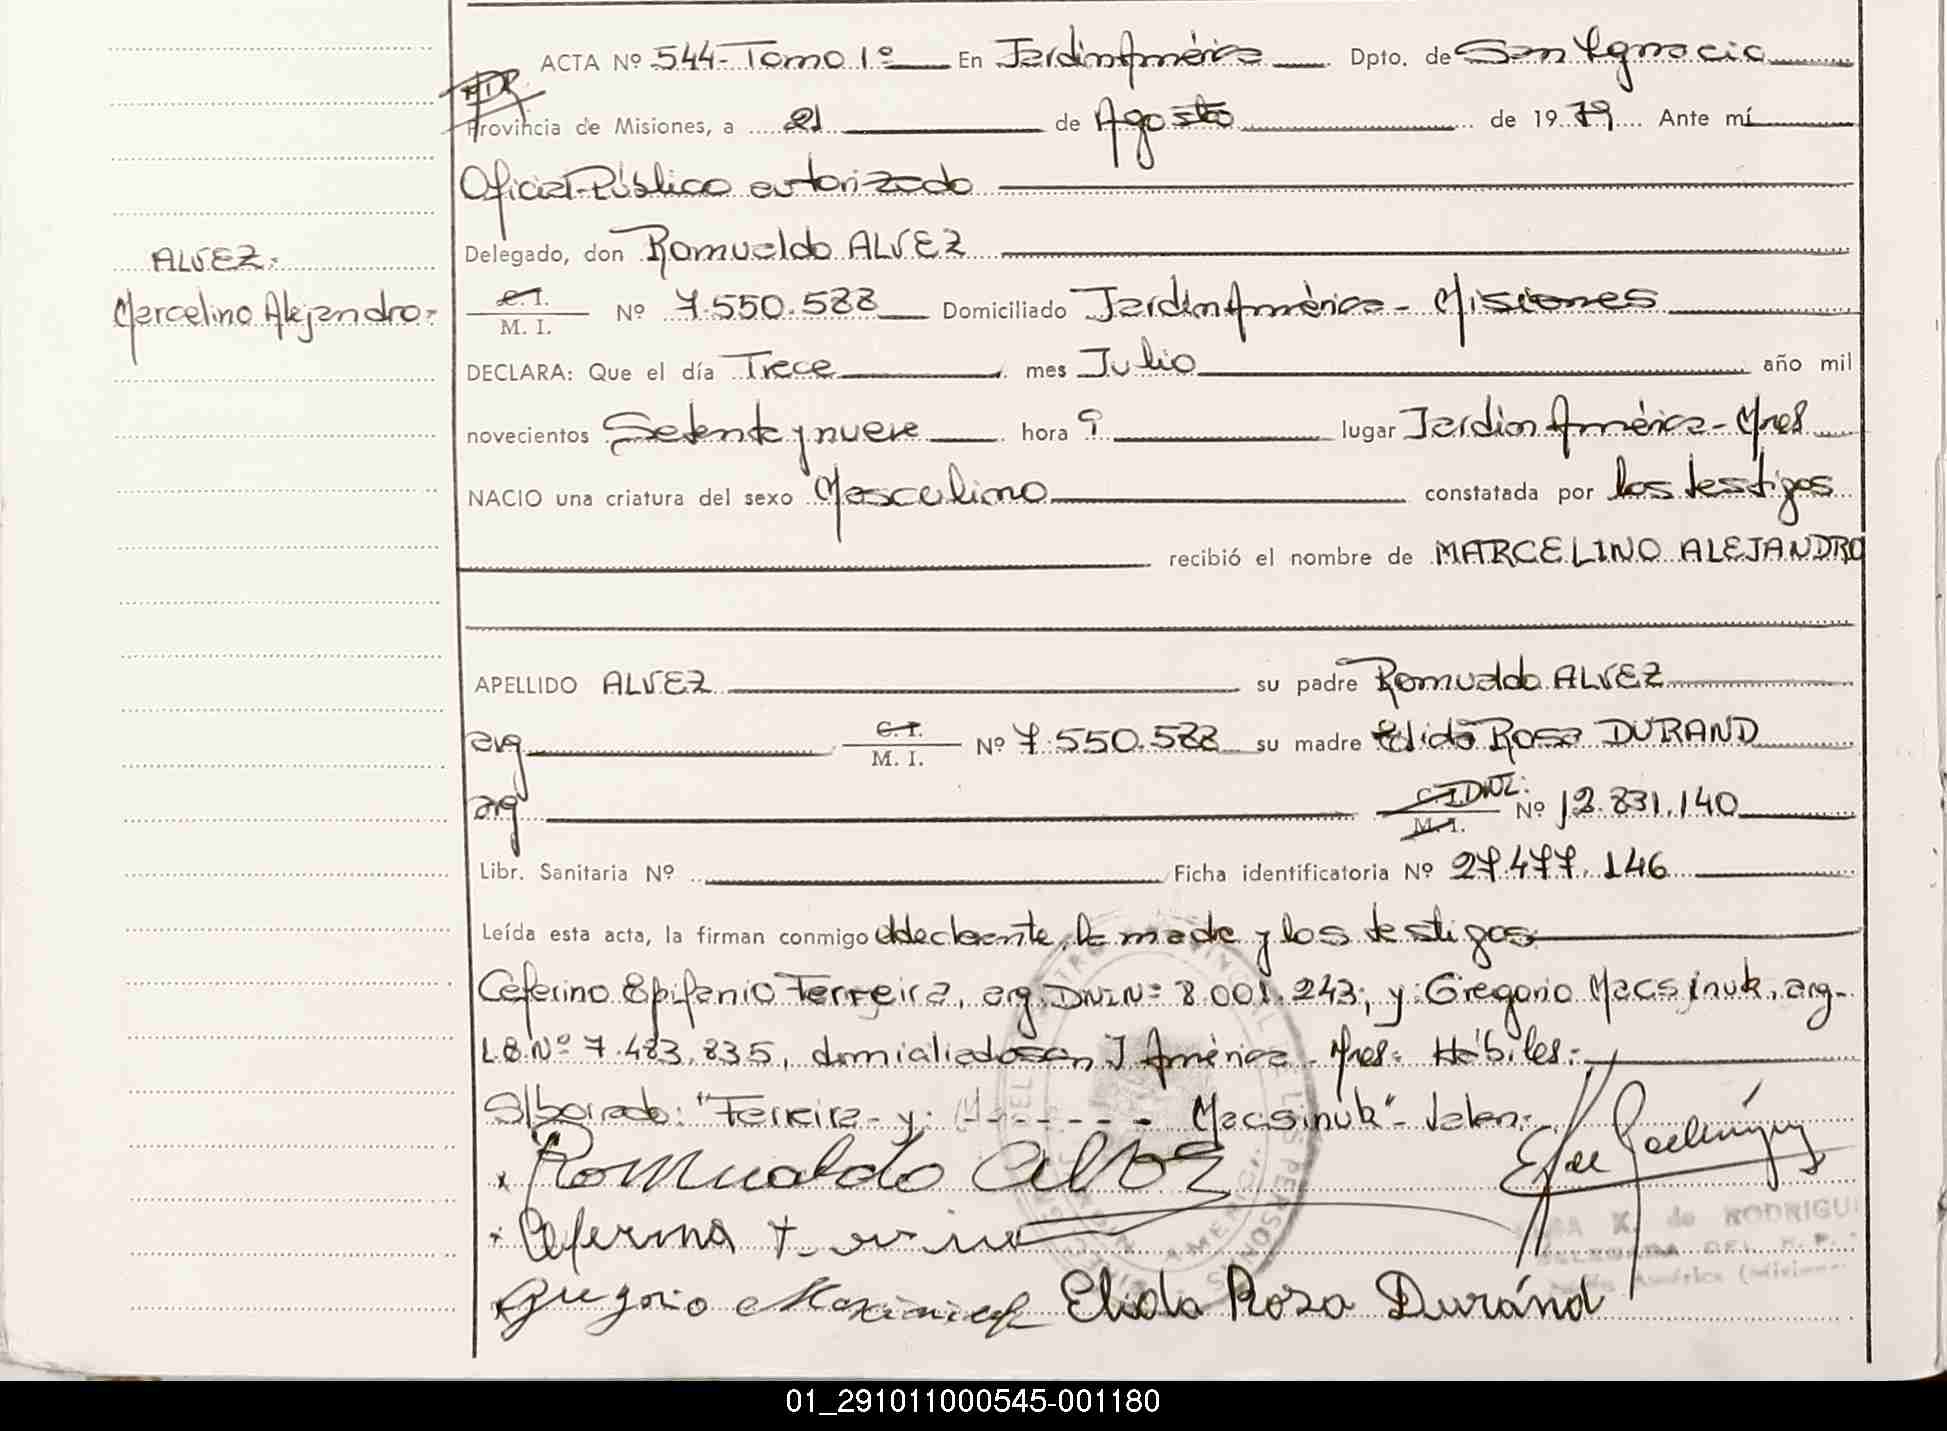 ACTA Nº 544- Tomo 1º En Jardin América Dpto. de San Ygnacio
Provincia de Misiones, a 21 de Agosto de 1979 Ante mí
Oficial Público autorizado
Delegado, don Romualdo ALVEZ
ALVEZ:
Marcelino Alejandro-
C. I.
M. I.
Nº 7.550.588 Domiciliado Jardin América - Misiones
DECLARA: Que el día Trece mes Julio año mil
novecientos Setenta y nueve hora 9 lugar Jardin América - Mnes
NACIO una criatura del sexo Masculino constatada por los testigos
recibió el nombre de MARCELINO ALEJANDRO
APELLIDO ALVEZ su padre Romualdo ALVEZ
arg C. I.
M. I.
Nº 7.550.588 su madre Elida Rosa DURAND
arg C. I. DNI:
M. I.
Nº 12.831.140
Libr. Sanitaria Nº Ficha identificatoria Nº 27.477.146
Leída esta acta, la firman conmigo el declarante, la madre y los testigos
Ceferino Epifanio Ferreira, arg. DNI Nº 8.001.243, y: Gregorio Macsinuk, arg-
LE Nº 7.483.835, domiciliados en J. América - Mnes- Hábiles:-
S/borrado: "Ferreira- y: M- - - - - - - Macsinuk"- Valen:
Romualdo Alvez
Ceferino
Gregorio
Elida Rosa Duránd
K. de RODRIGU
DELEGADA DEL R. P.
América (Mision
01_291011000545-001180